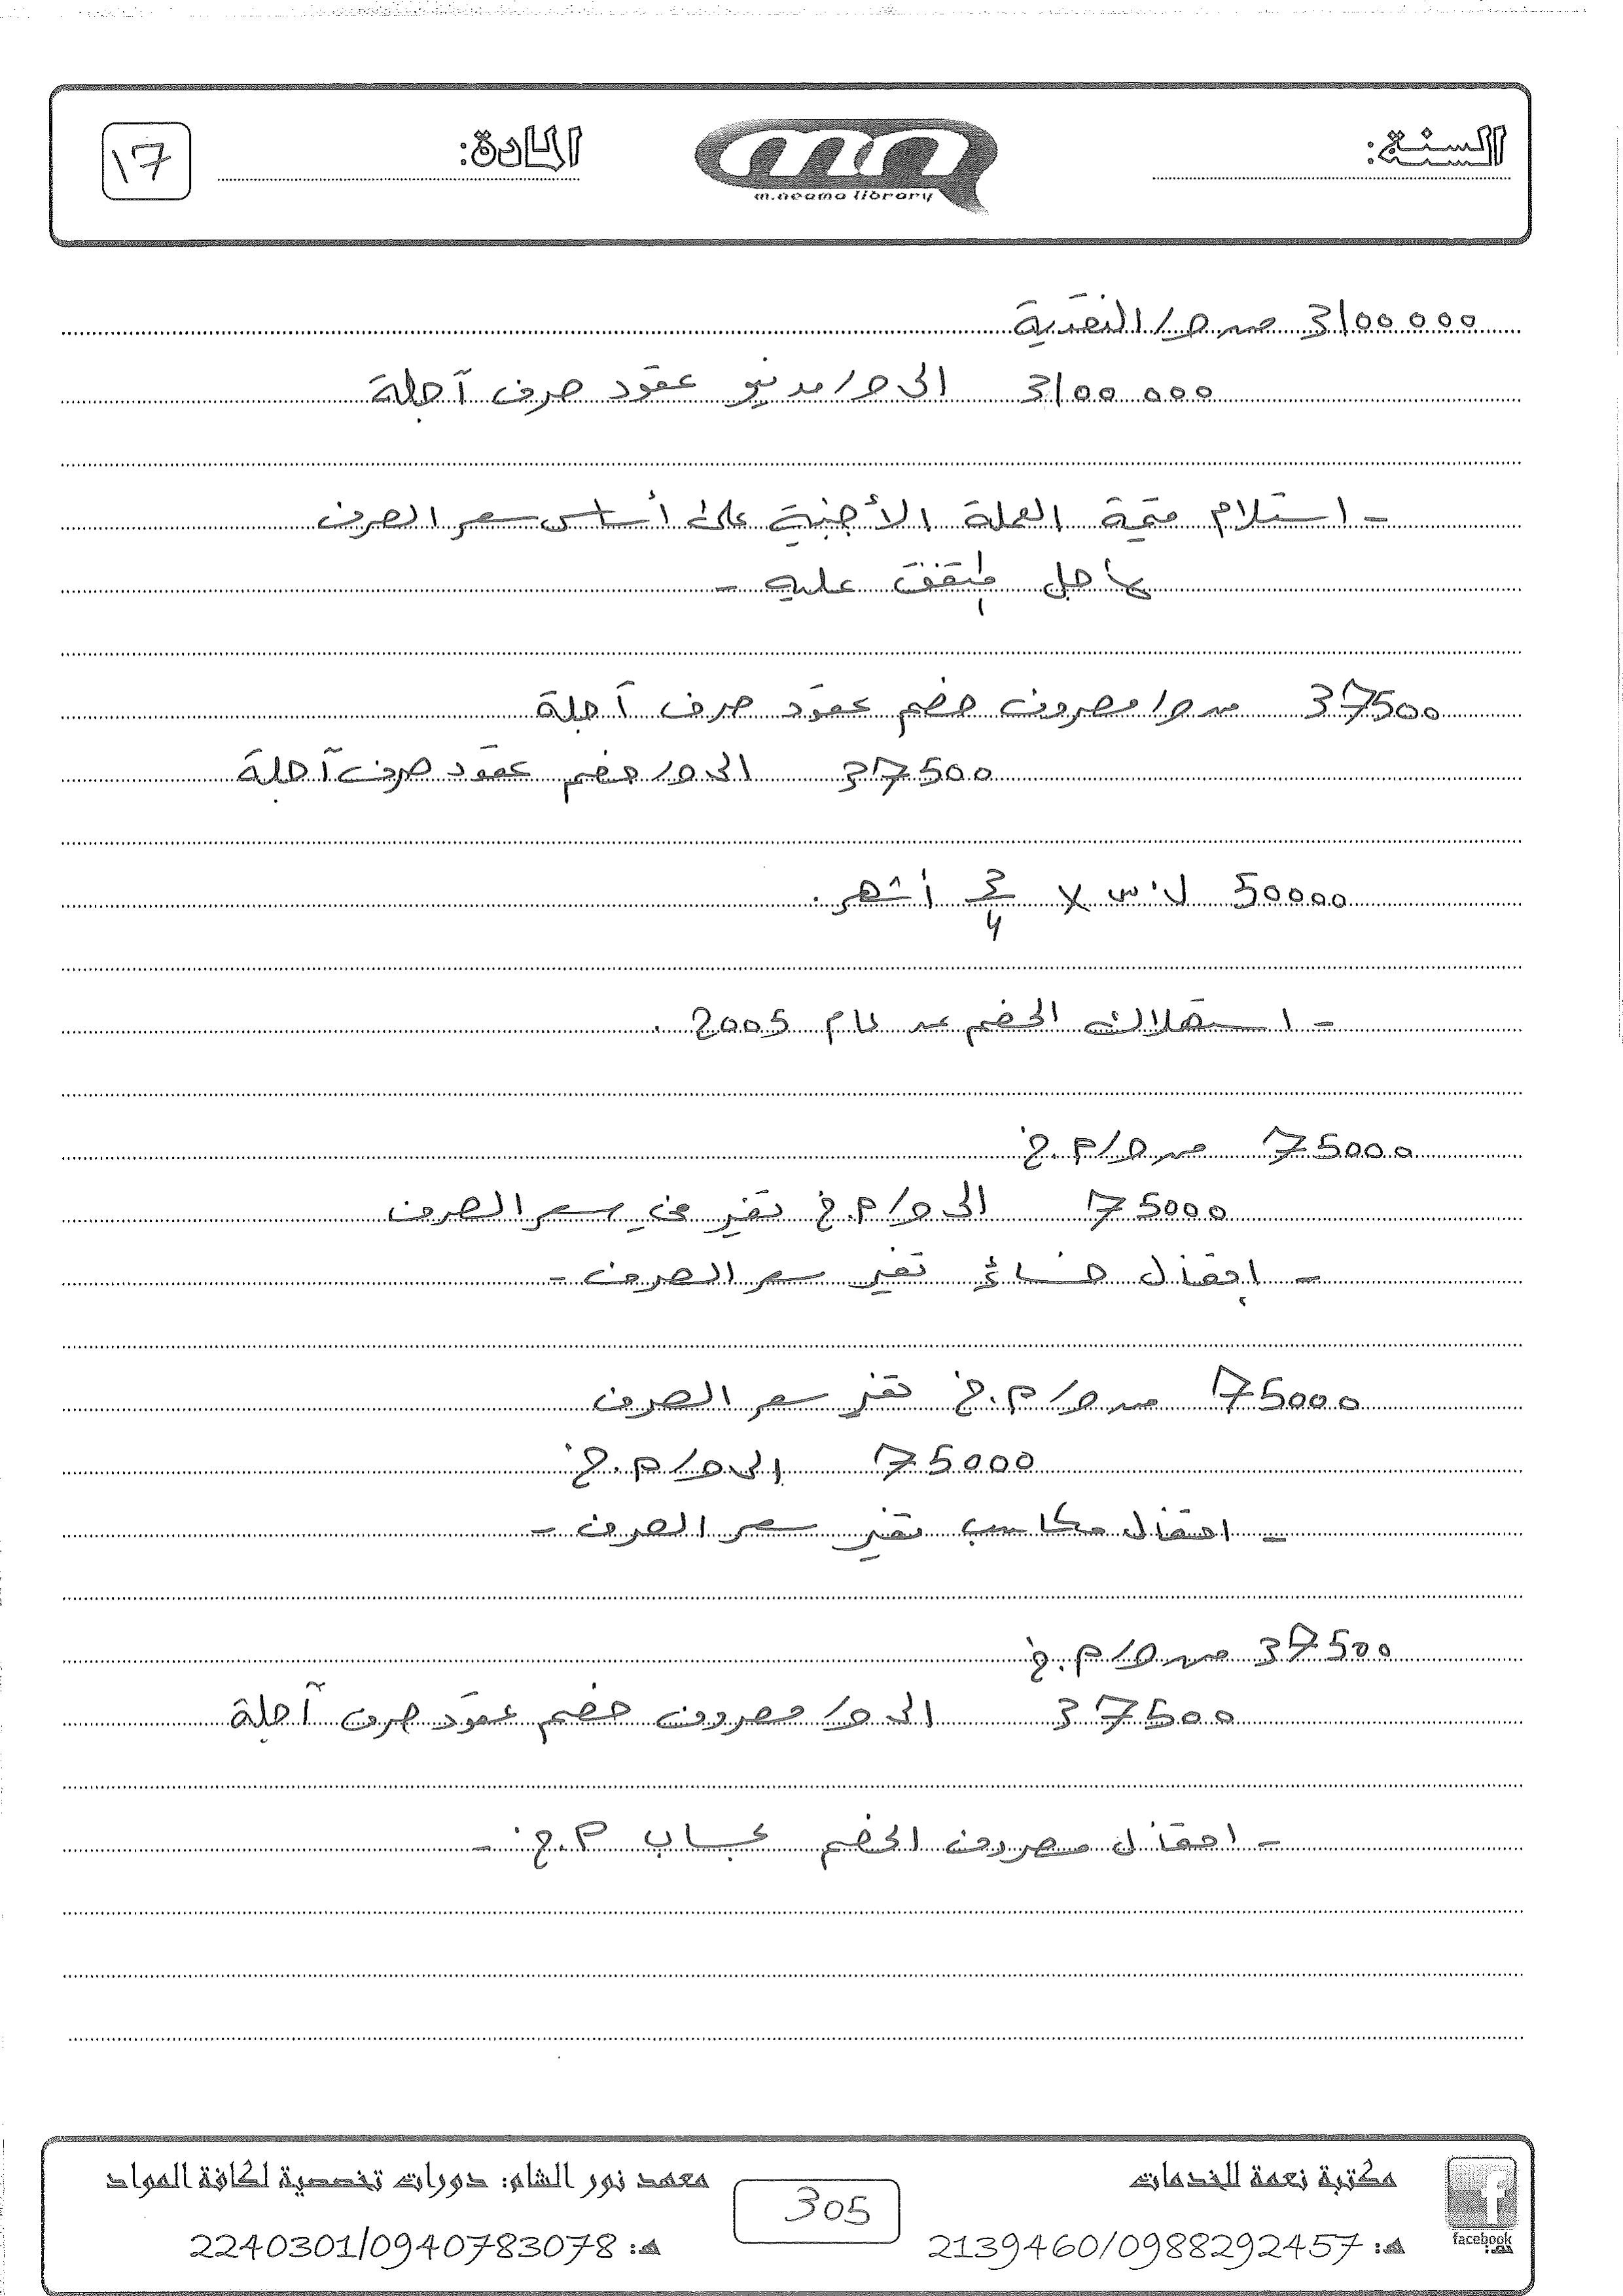 السنة:
m.neama library
المادة:
17
3100000 من ح/ النقدية
3100000 الى ح/ مدنيو عقود صرف آجلة
- استلام قيمة العملة الأجنبية على أساس سعر الصرف
متفق عليه -
37500 من ح/ مصروف خصم عقود صرف آجلة
37500 الى ح/ خصم عقود صرف آجلة
50000 ل.س × 3/4 أشهر.
- استهلاك الخصم عن عام 2005.
75000 من ح/ م.خ
75000 الى ح/ م.خ تغير في سعر الصرف
- إقفال خسائر تغير سعر الصرف -
75000 من ح/ م.خ تغير سعر الصرف
75000 إلى ح/ م.خ
- اقفال مكاسب تغير سعر الصرف -
37500 من ح/ م.خ
37500 الى ح/ مصروف خصم عقود صرف آجلة
- اقفال مصروف الخصم بحساب م.خ -
facebook
مكتبة نعمة للخدمات
هـ: 2139460/0988292457
305
معهد نور الشام: دورات تخصصية لكافة المواد
هـ: 2240301/0940783078